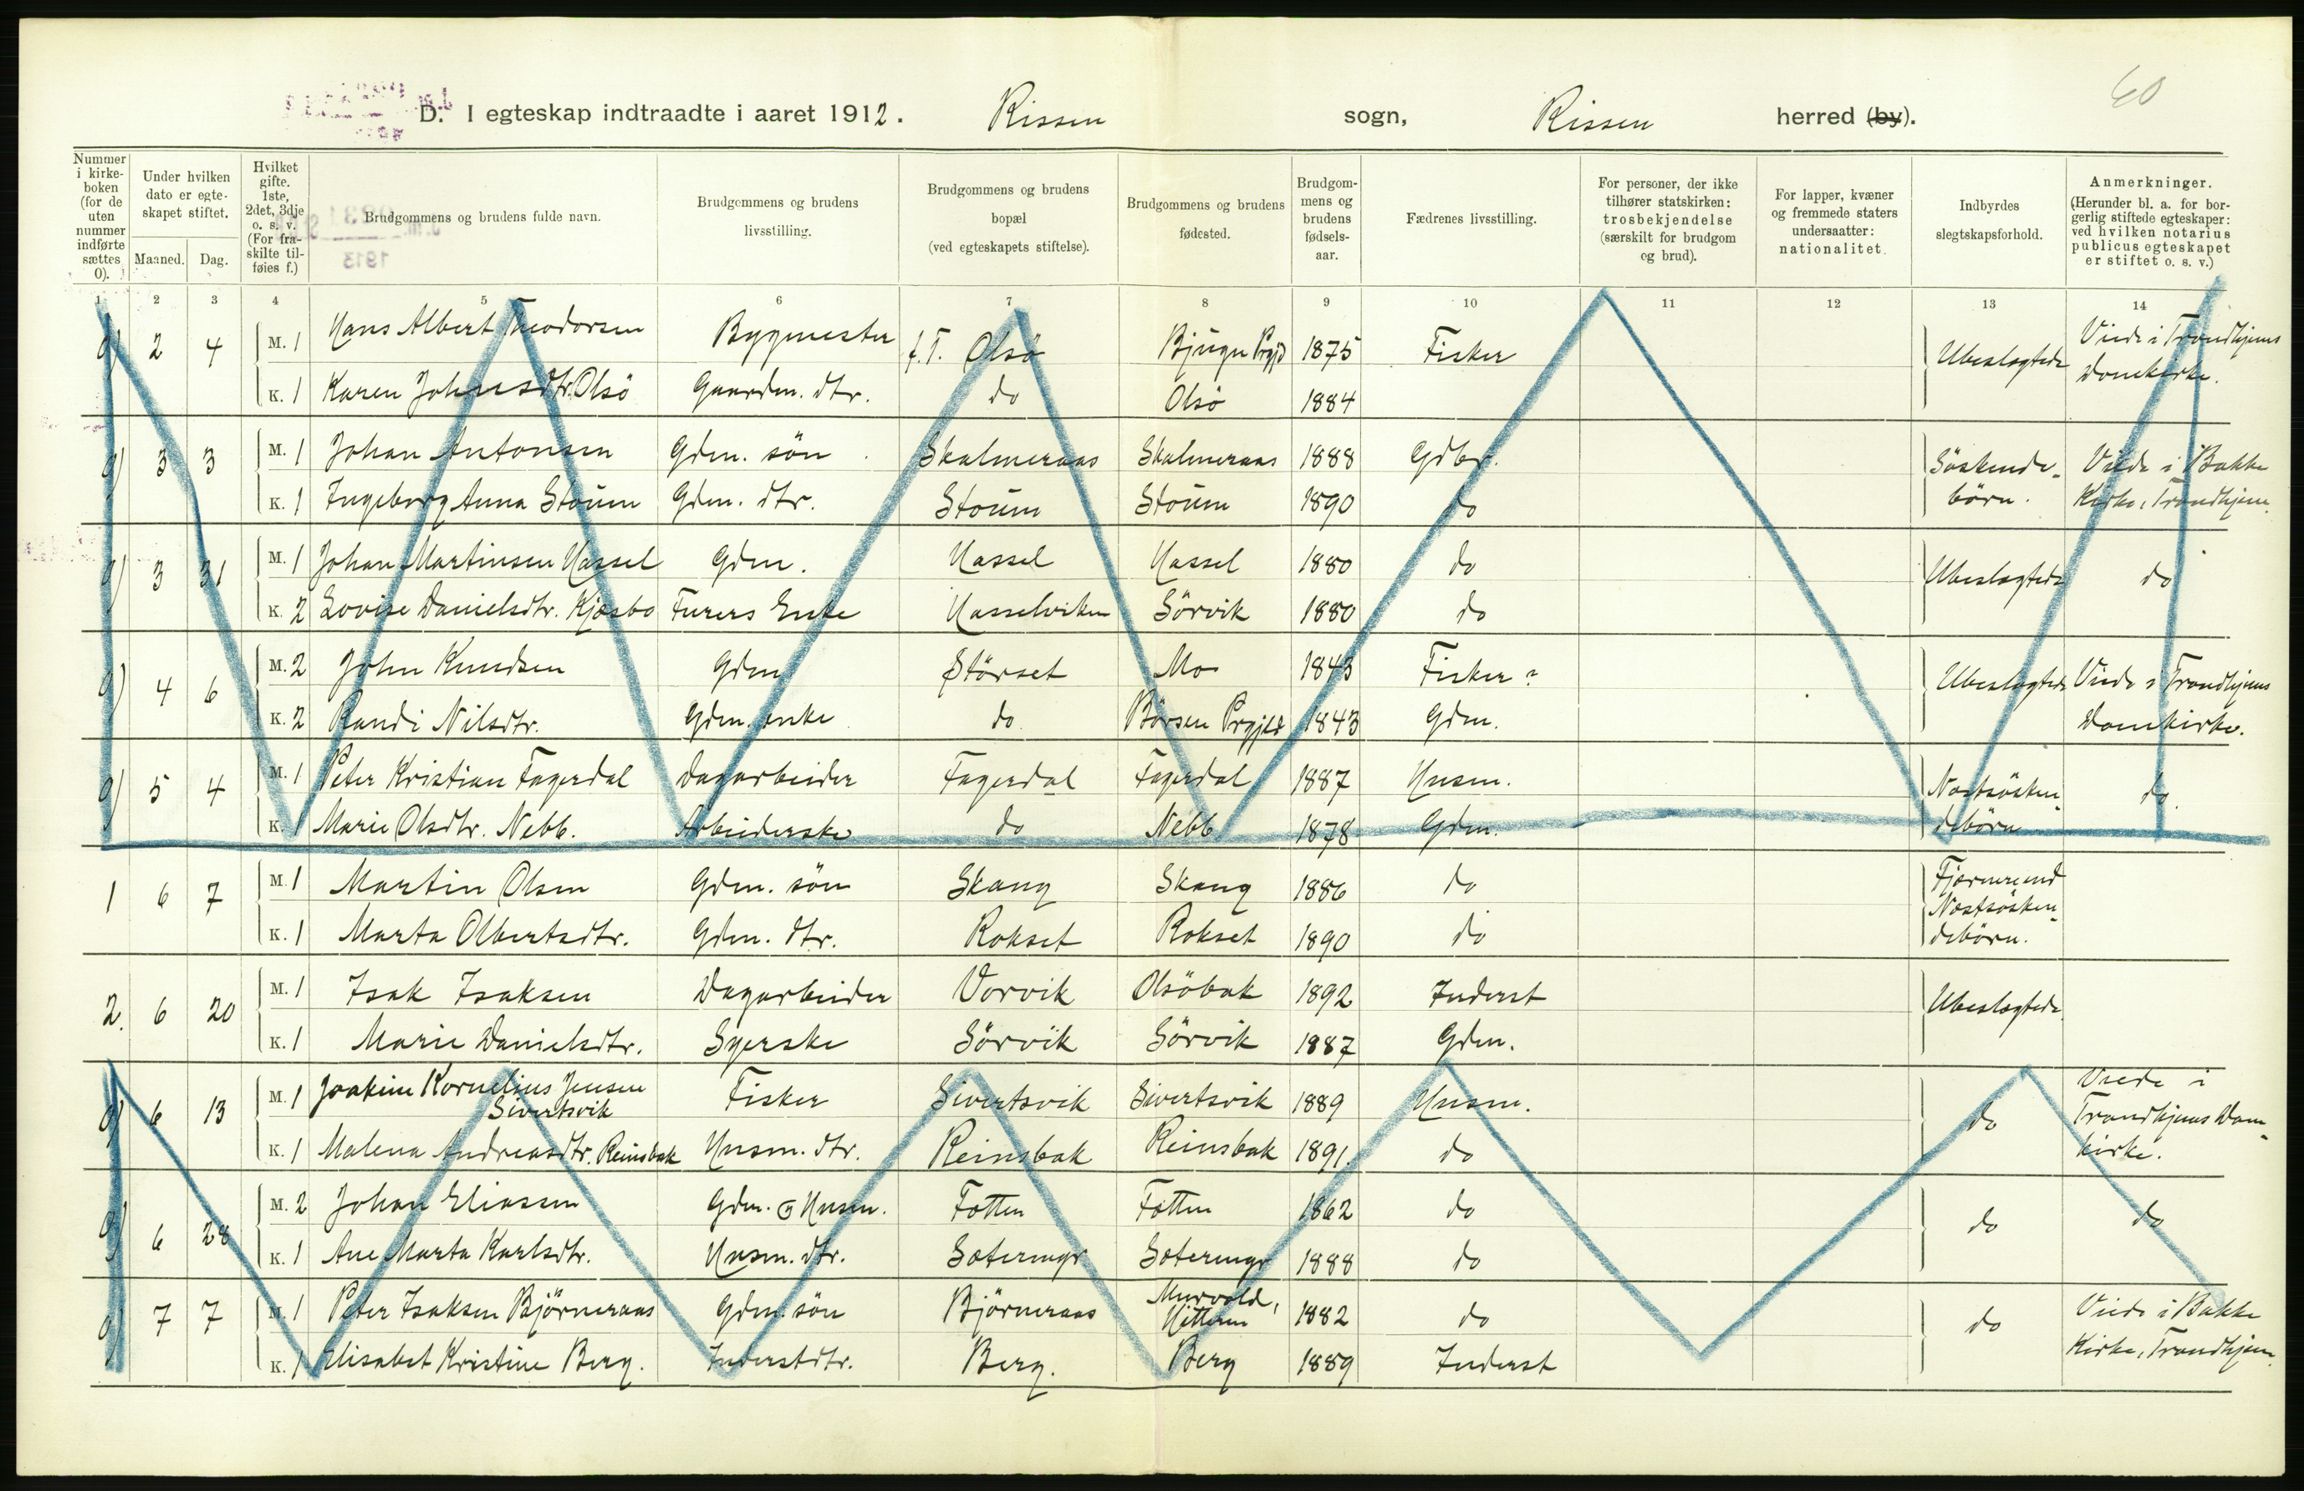 60
D. I egteskap indtraadte i aaret 1912. Rissen sogn, Rissen herred (by).
Nummer i kirkeboken (for de uten nummer indførte sættes 0).
Under hvilken dato er egteskapet stiftet.
Maaned. Dag.
Hvilket gifte. 1ste, 2det, 3dje o. s. v. (For fraskilte tilføies f.)
Brudgommens og brudens fulde navn.
Brudgommens og brudens livsstilling.
Brudgommens og brudens bopæl (ved egteskapets stiftelse).
Brudgommens og brudens fødested.
Brudgommens og brudens fødselsaar.
Fædrenes livsstilling.
For personer, der ikke tilhører statskirken: trosbekjendelse (særskilt for brudgom og brud).
For lapper, kvæner og fremmede staters undersaatter: nationalitet.
Indbyrdes slegtskapsforhold.
Anmerkninger. (Herunder bl. a. for borgerlig stiftede egteskaper: ved hvilken notarius publicus egteskapet er stiftet o. s. v.)
1 2 3 4 5 6 7 8 9 10 11 12 13 14
0) 2 4 M. 1 Hans Albert Theodorsen Bygmester f. T. Olsö Bjugn Prgjd 1875 Fisker Ubeslogtede Viede i Trondhjems Domkirke.
K. 1 Karen Johnsdtr. Olsö Gaardm. dtr. do Olsö 1884
0) 3 3 M. 1 Johan Antonsen Gdm. sön Skalmeraas Skalmeraas 1888 Gdbr. Söskendebörn. Viede i Bakke Kirke, Trondhjem.
K. 1 Ingeborg Anna Stoum Gdm. dtr. Stoum Stoum 1890 do
0) 3 31 M. 1 Johan Martinsen Hassel Gdm. Hassel Hassel 1880 do Ubeslogtede do
K. 2 Lovise Danielsdtr. Kjøsbo Furers Enke Hasselviken Sörvik 1880 do
0) 4 6 M. 2 John Knudsen Gdm Störset Mo 1843 Fisker ? Ubeslogtede Viede i Trondhjems Domkirke.
K. 2 Randi Nilsdtr. Gdm. enke do Börsen Prgjld 1843 Gdm.
0) 5 4 M. 1 Peter Kristian Fagerdal Dagarbeider Fagerdal Fagerdal 1887 Husm. Nøstsöskendebörn do.
K. 1 Marie Olsdtr. Nebb. Arbeiderske do Nebb 1878 Gdm.
1 6 7 M. 1 Martin Olsen Gdm. sön Skang Skang 1886 do Fjærnere end Næstsöskendebörn.
K. 1 Marta Olbertsdtr. Gdm. dtr. Rokset Rokset 1890 do
2. 6 20 M. 1 Isak Isaksen Dagarbeider Vorvik Olsöbak 1892 Inderst Ubeslogtede.
K. 1 Marie Danielsdtr. Syerske Sörvik Sörvik 1887 Gdm.
0) 6 13 M. 1 Joakim Kornelius Jensen Sivertsvik Fisker Sivertsvik Sivertsvik 1889 Husm. do Viede i Trondhjems Domkirke.
K. 1 Malena Andreasdtr. Reinsbak Husm. dtr. Reinsbak Reinsbak 1891. do
0) 6 28 M. 2 Johan Eliassen Gdm. og Husm. Fotten Fotten 1862 do do do
K. 1 Ane Marta Karlsdtr. Husm. dtr. Soterengr Soterengr 1888 do
0) 7 7 M. 1 Peter Isaksen Björneraas Gdm. sön Björneraas Murvold, Hitteren 1882 do do Viede i Bakke Kirke, Trondhjem.
K. 1 Elisabet Kristine Berg. Inderstdtr. Berg. Berg 1889 Inderst